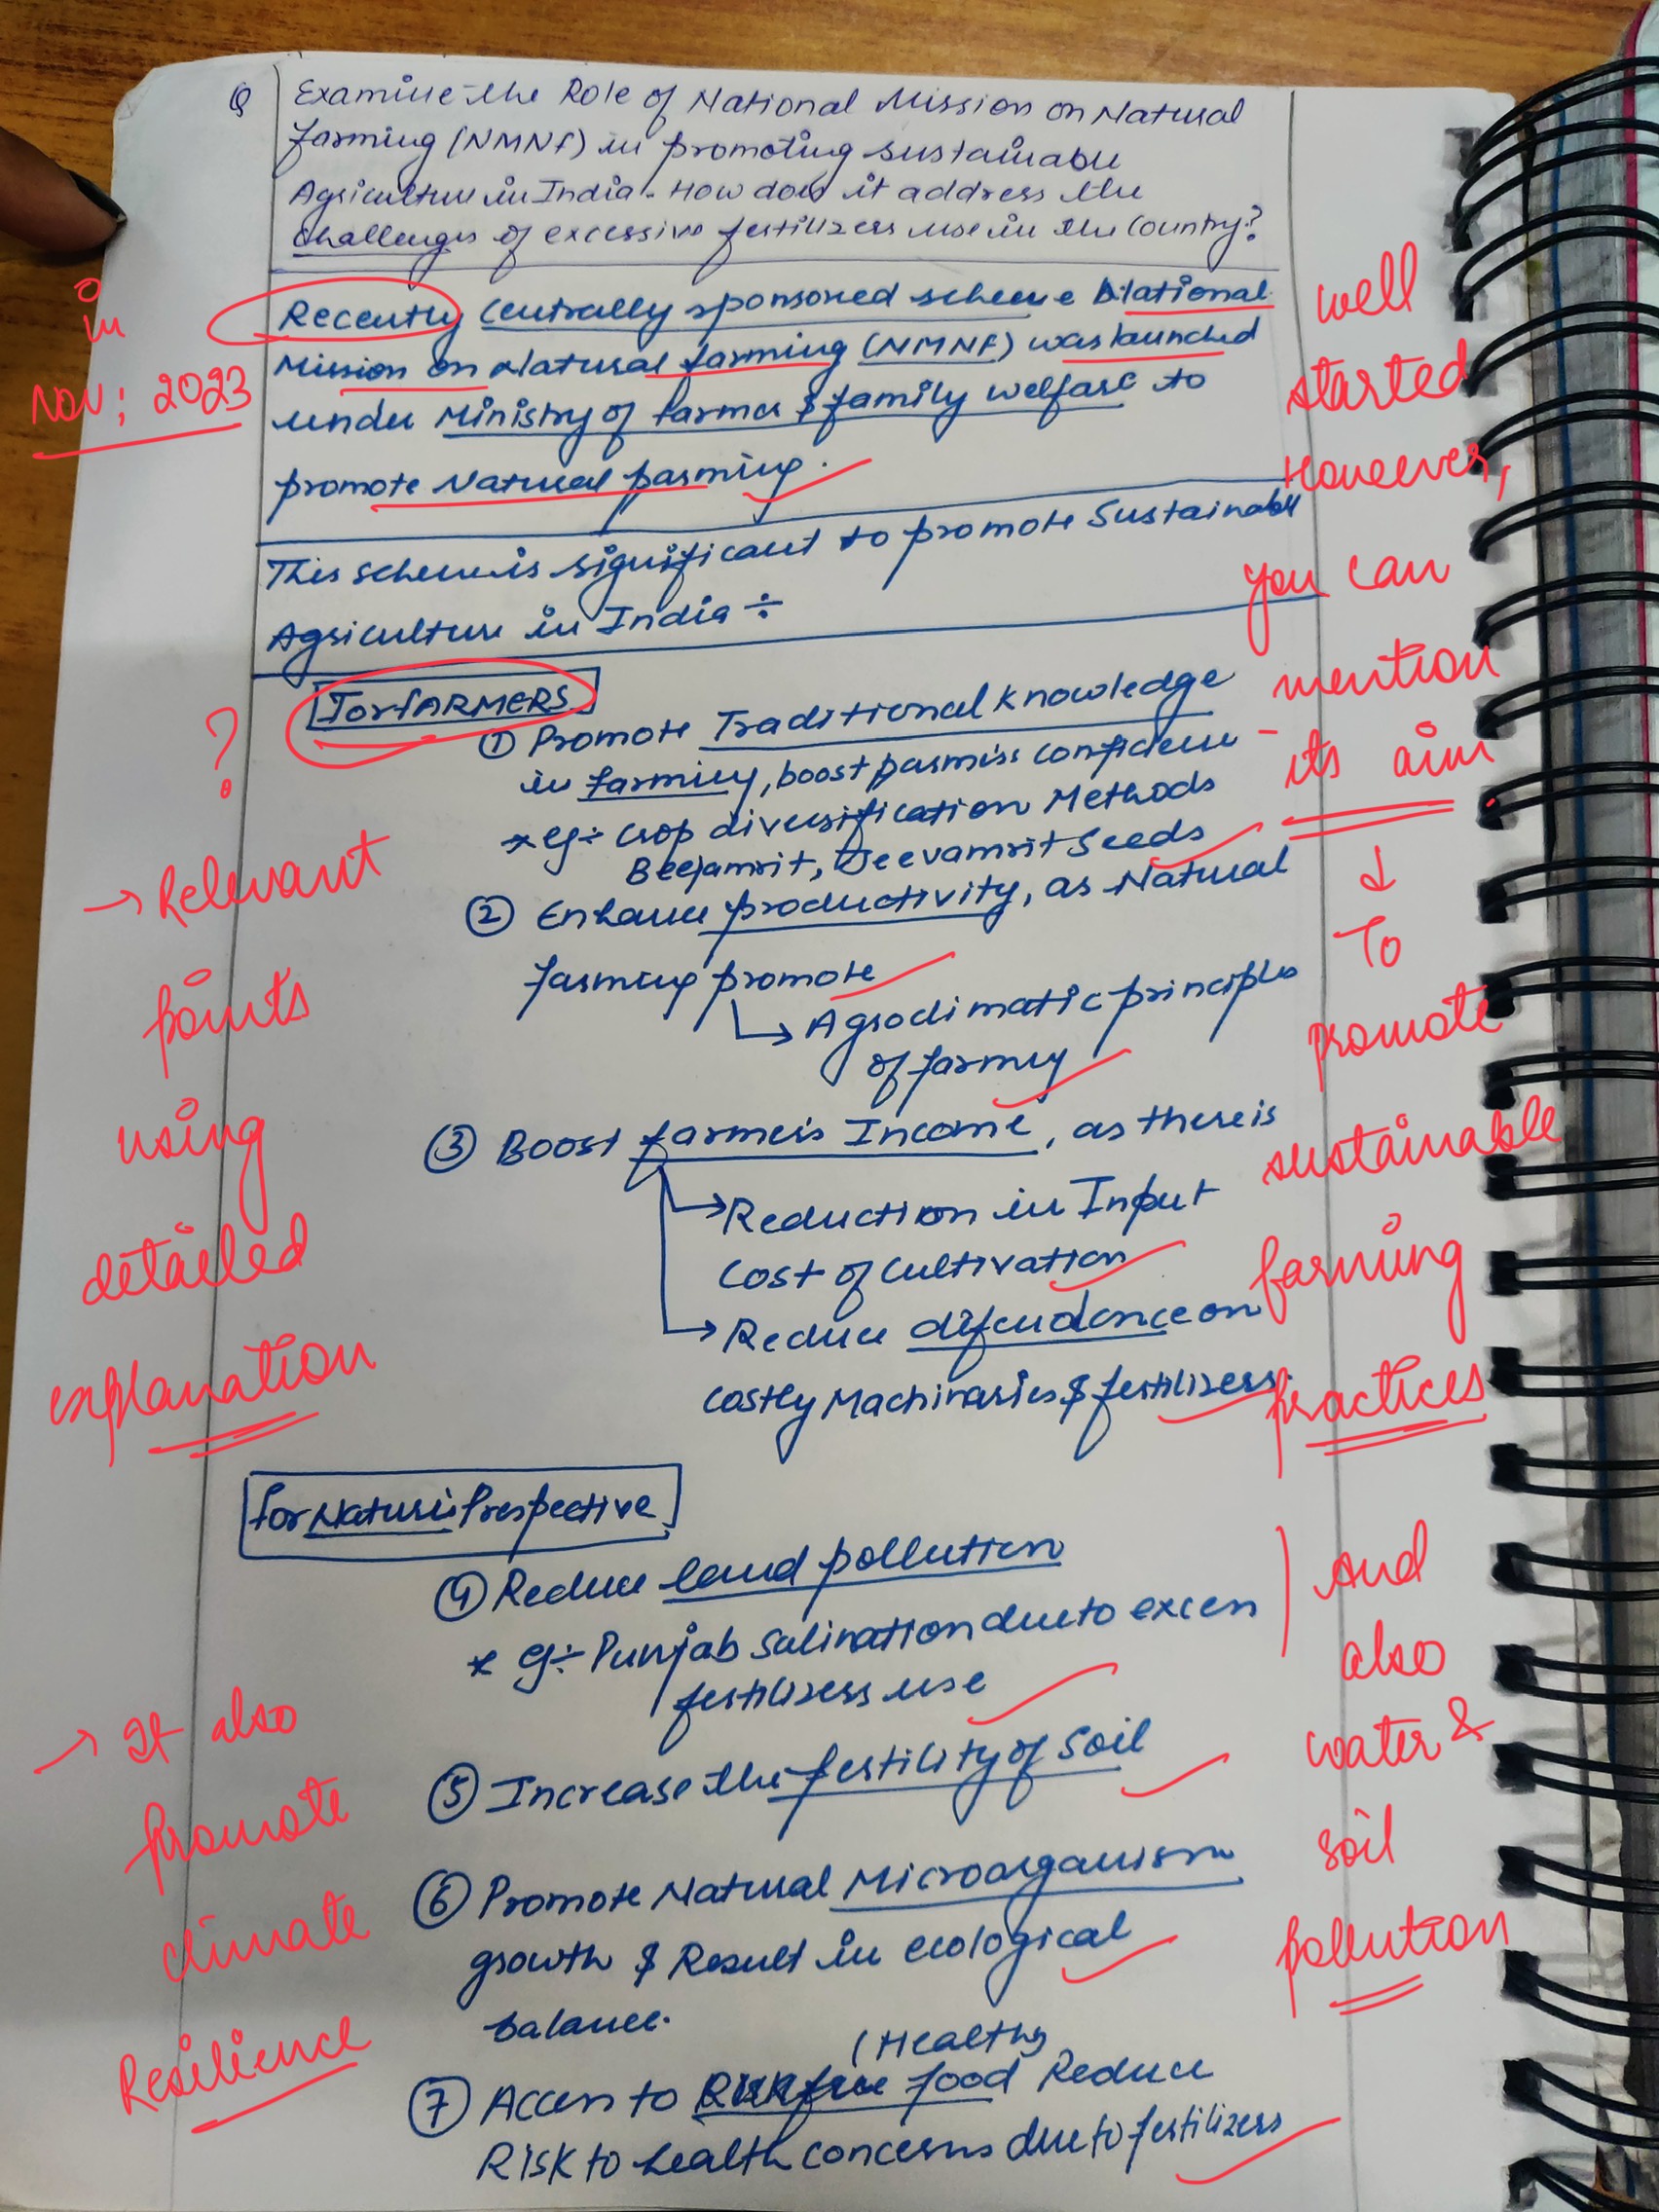 Q Examine the Role of National Mission on Natural
farming (NMNF) in promoting sustainable
Agriculture in India. How does it address the
challenges of excessive fertilizers use in the country?
Recently centrally sponsored scheme National
Mission on Natural farming (NMNF) was launched
under Ministry of farmer & family welfare to
promote Natural farming.
in
Nov; 2023
well
started
However,
you can
mention
its aim
↓
To
promote
sustainable
farming
practices
This scheme is significant to promote Sustainable
Agriculture in India ÷
For FARMERS
?
① Promote Traditional knowledge
in farming, boost farmers confidence
* eg ÷ Crop diversification Methods
Beejamrit, Jeevamrit Seeds
② Enhance productivity, as Natural
farming promote
↳ Agroclimatic principles
of farming
→ Relevant
points
using
detailed
explanation
③ Boost farmers Income, as there is
→ Reduction in Input
cost of cultivation
→ Reduce dependence on
costly Machinaries & fertilizers.
for Nature's Prespective
④ Reduce land pollution
* eg ÷ Punjab salination due to excess
fertilizers use
And
also
water &
soil
pollution
⑤ Increase the fertility of Soil
⑥ Promote Natural Microorganism
growth & Result in ecological
balance.
→ It also
promote
climate
Resilience
(Healthy
⑦ Access to Risk free food Reduce
Risk to health concerns due to fertilizers